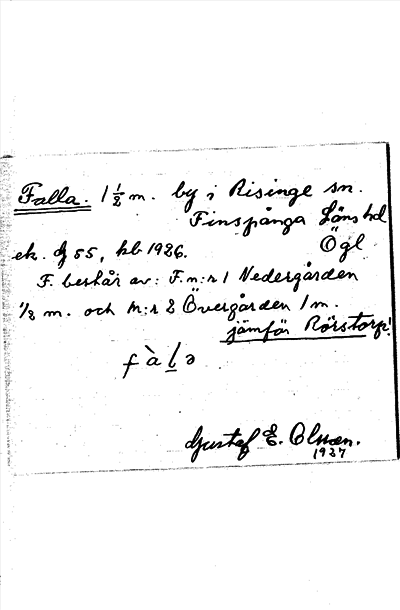 Falla. 1 1/2 m. by i Risinge sn.
Finspånga Läns hd
Ögl
ek. bl 55, hb 1926.
F. består av: F. n:r 1 Nedergården
1/2 m. och N:r 2 Övergården 1 m.
jämför Rörstorp!
f à l ə
Gustaf E. Olsson.
1927